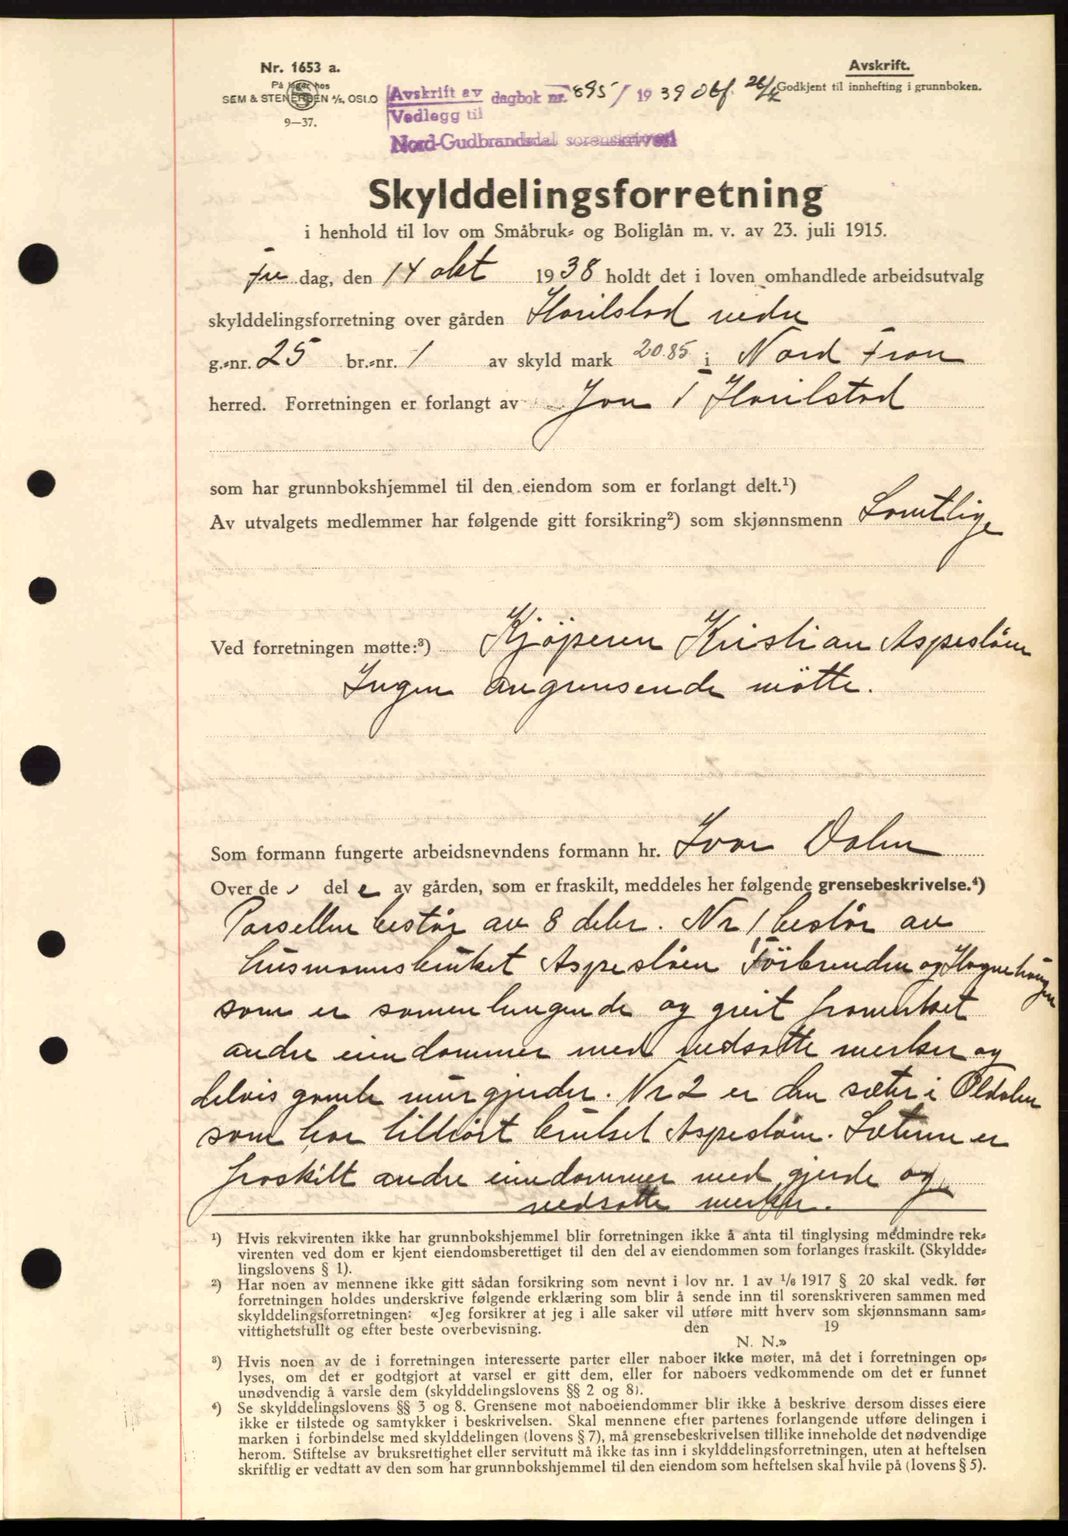 Nr. 1653 a.
På lager hos
SEM & STENERSEN A/S, OSLO
9—37.
Avskrift av
Vedlegg til
dagbok nr. 895/1939 Obf 26/4
Nord-Gudbrandsdal sorenskriveri
Avskrift.
Godkjent til innhefting i grunnboken.
Skylddelingsforretning
i henhold til lov om Småbruk- og Boliglån m. v. av 23. juli 1915.
Fre dag, den 14 okt 1938 holdt det i loven omhandlede arbeidsutvalg
skylddelingsforretning over gården Harilstad nedre
g.-nr. 25 br.-nr. 1 av skyld mark 20.85 i Nord Fron
herred. Forretningen er forlangt av Jon T Harilstad
som har grunnbokshjemmel til den eiendom som er forlangt delt.¹)
Av utvalgets medlemmer har følgende gitt forsikring²) som skjønnsmenn Samtlige
Ved forretningen møtte:³) Kjøperen Kristian Aspesløen
Ingen angrensende møtte.
Som formann fungerte arbeidsnevndens formann hr. Ivar Dalen
Over de del e av gården, som er fraskilt, meddeles her følgende grensebeskrivelse.⁴)
Parsellen består av 8 deler. Nr 1 består av
husmannsbruket Aspesløen Förbrenden og Hagnehaugen
som er sammenhengende og greit framerket
andre eiendommer med nedsatte merker og
delvis gamle murgjerder. Nr 2 er den sæter i Øldalen
som har tilhørt bruket Aspesløen. Sæteren er
fraskilt andre eiendommer med gjerde og
nedsatte merker.
¹) Hvis rekvirenten ikke har grunnbokshjemmel blir forretningen ikke å anta til tinglysing medmindre rek-
virenten ved dom er kjent eiendomsberettiget til den del av eiendommen som forlanges fraskilt. (Skyldde-
lingslovens § 1).
²) Har noen av mennene ikke gitt sådan forsikring som nevnt i lov nr. 1 av 1/6 1917 § 20 skal vedk. før
forretningen holdes underskrive følgende erklæring som blir å sende inn til sorenskriveren sammen med
skylddelingsforretningen: «Jeg forsikrer at jeg i alle saker vil utføre mitt hverv som skjønnsmann sam-
vittighetsfullt og efter beste overbevisning. den 19
N. N.»
³) Hvis noen av de i forretningen interesserte parter eller naboer ikke møter, må det i forretningen op-
lyses, om det er godtgjort at varsel er gitt dem, eller for naboers vedkommende om det er funnet
unødvendig å varsle dem (skylddelingslovens §§ 2 og 8).
⁴) Se skylddelingslovens §§ 3 og 8. Grensene mot naboeiendommer blir ikke å beskrive dersom disses eiere
ikke er tilstede og samtykker i beskrivelsen. Skal mennene efter partenes forlangende utføre delingen i
marken i forbindelse med skylddelingen (lovens § 7), må grensebeskrivelsen tillike inneholde det nødvendige
herom. Stiftelse av bruksrettighet eller servitutt må ikke tas inn i skylddelingsforretningen, uten at heftelsen
skriftlig er vedtatt av den som har grunnbokshjemmel til den eiendom som heftelsen skal hvile på (lovens § 5).